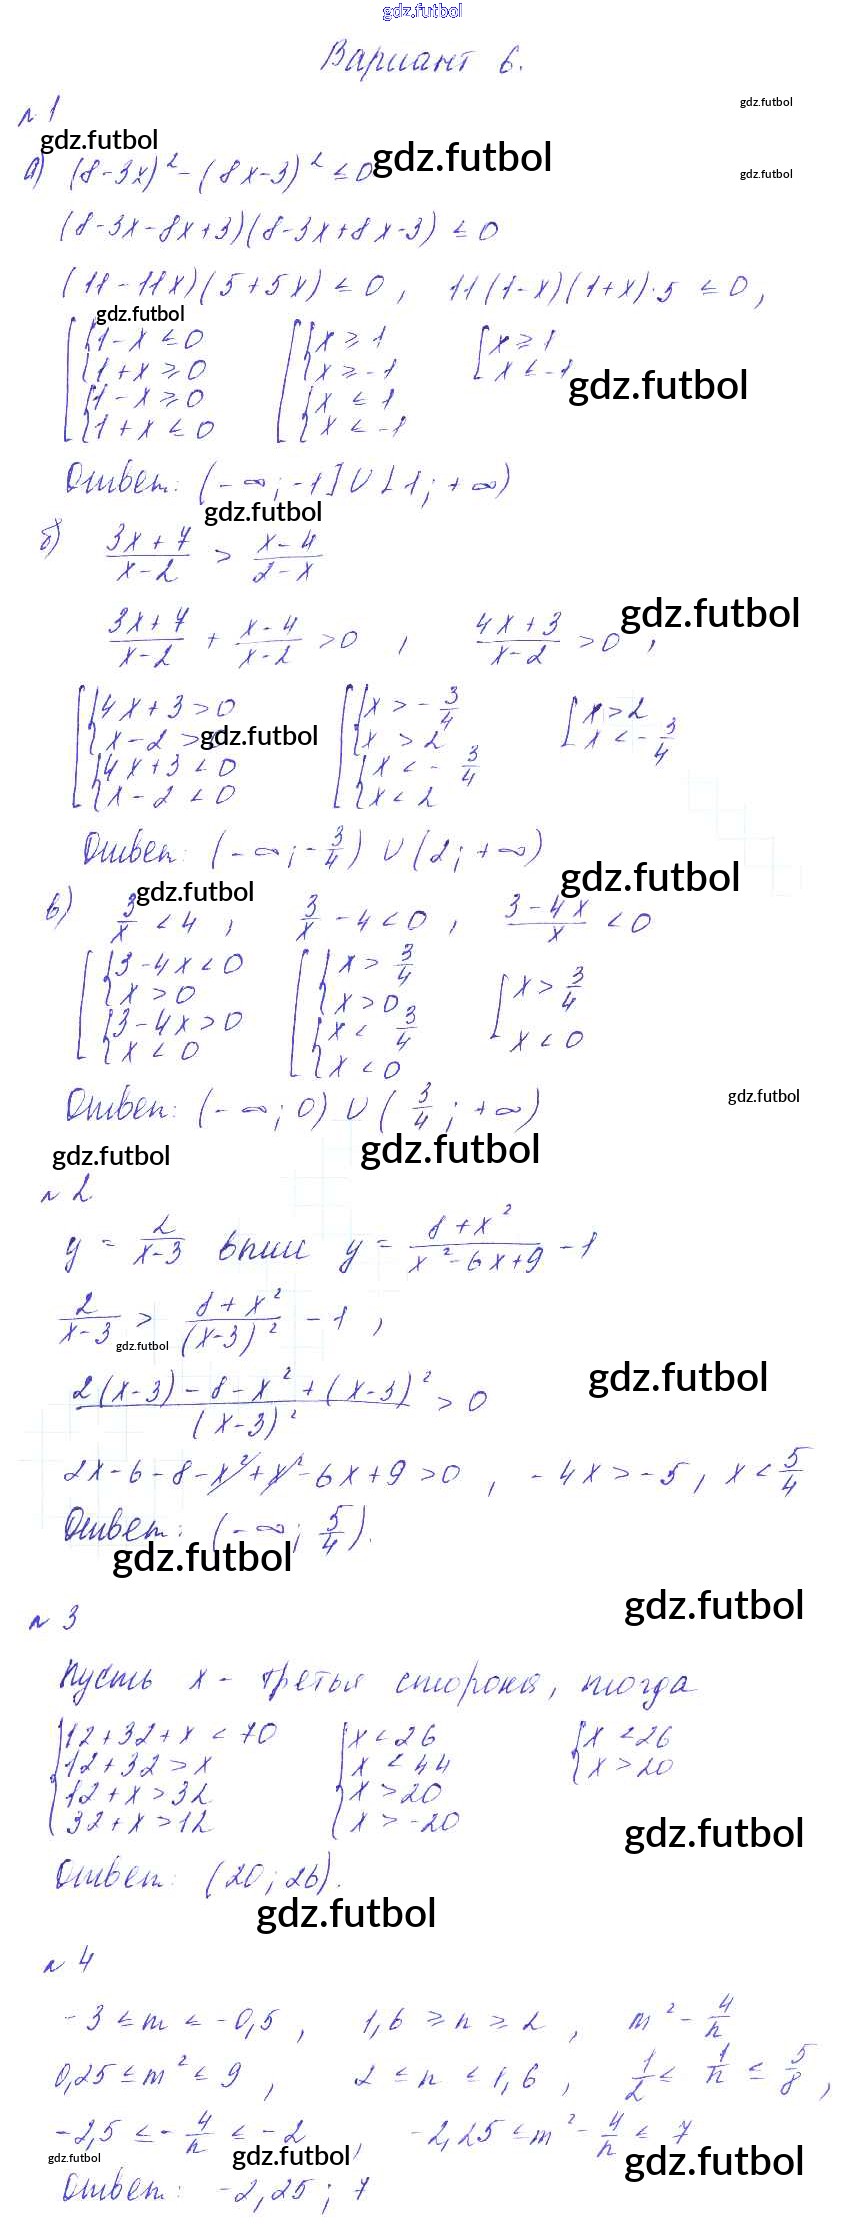 gdz.futbol
Вариант 6.
№ 1
gdz.futbol
gdz.futbol
gdz.futbol
gdz.futbol
а) (8-3x)² - (8x-3)² ≤ 0
(8-3x-8x+3)(8-3x+8x-3) ≤ 0
(11-11x)(5+5x) ≤ 0, 11(1-x)(1+x)·5 ≤ 0,
gdz.futbol
[ { 1-x ≤ 0 [ { x ≥ 1 [ x ≥ 1
{ 1+x ≥ 0 { x ≥ -1 x ≤ -1
{ 1-x ≥ 0 { x ≤ 1
{ 1+x ≤ 0 { x ≤ -1
gdz.futbol
Ответ: (-∞; -1] ∪ [1; +∞)
gdz.futbol
б) (3x+7)/(x-2) > (x-4)/(2-x)
(3x+7)/(x-2) + (x-4)/(x-2) > 0, (4x+3)/(x-2) > 0,
gdz.futbol
[ { 4x+3 > 0 [ { x > -3/4 [ x > 2
{ x-2 > 0 { x > 2 x < -3/4
{ 4x+3 < 0 { x < -3/4
{ x-2 < 0 { x < 2
gdz.futbol
Ответ: (-∞; -3/4) ∪ (2; +∞)
gdz.futbol
gdz.futbol
в) 3/x < 4, 3/x - 4 < 0, (3-4x)/x < 0
[ { 3-4x < 0 [ { x > 3/4 [ x > 3/4
{ x > 0 { x > 0 x < 0
{ 3-4x > 0 { x < 3/4
{ x < 0 { x < 0
Ответ: (-∞; 0) ∪ (3/4; +∞)
gdz.futbol
gdz.futbol
gdz.futbol
№ 2
y = 2/(x-3) выше y = (8+x²)/(x²-6x+9) - 1
2/(x-3) > (8+x²)/(x-3)² - 1,
gdz.futbol
gdz.futbol
(2(x-3)-8-x²+(x-3)²)/(x-3)² > 0
2x-6-8-x²+x²-6x+9 > 0, -4x > -5, x < 5/4
Ответ: (-∞; 5/4).
gdz.futbol
gdz.futbol
№ 3
Пусть x - третья сторона, тогда
{ 12+32+x < 70 { x < 26 { x < 26
12+32 > x x < 44 x > 20
12+x > 32 x > 20
32+x > 12 x > -20
gdz.futbol
Ответ: (20; 26).
gdz.futbol
№ 4
-3 ≤ m ≤ -0,5, 1,6 ≥ n ≥ 2, m² - 4/n
0,25 ≤ m² ≤ 9, 2 ≤ n ≤ 1,6, 1/2 ≤ 1/n ≤ 5/8,
-2,5 ≤ -4/n ≤ -2, -2,25 ≤ m² - 4/n ≤ 7
gdz.futbol
gdz.futbol
gdz.futbol
Ответ: -2,25; 7